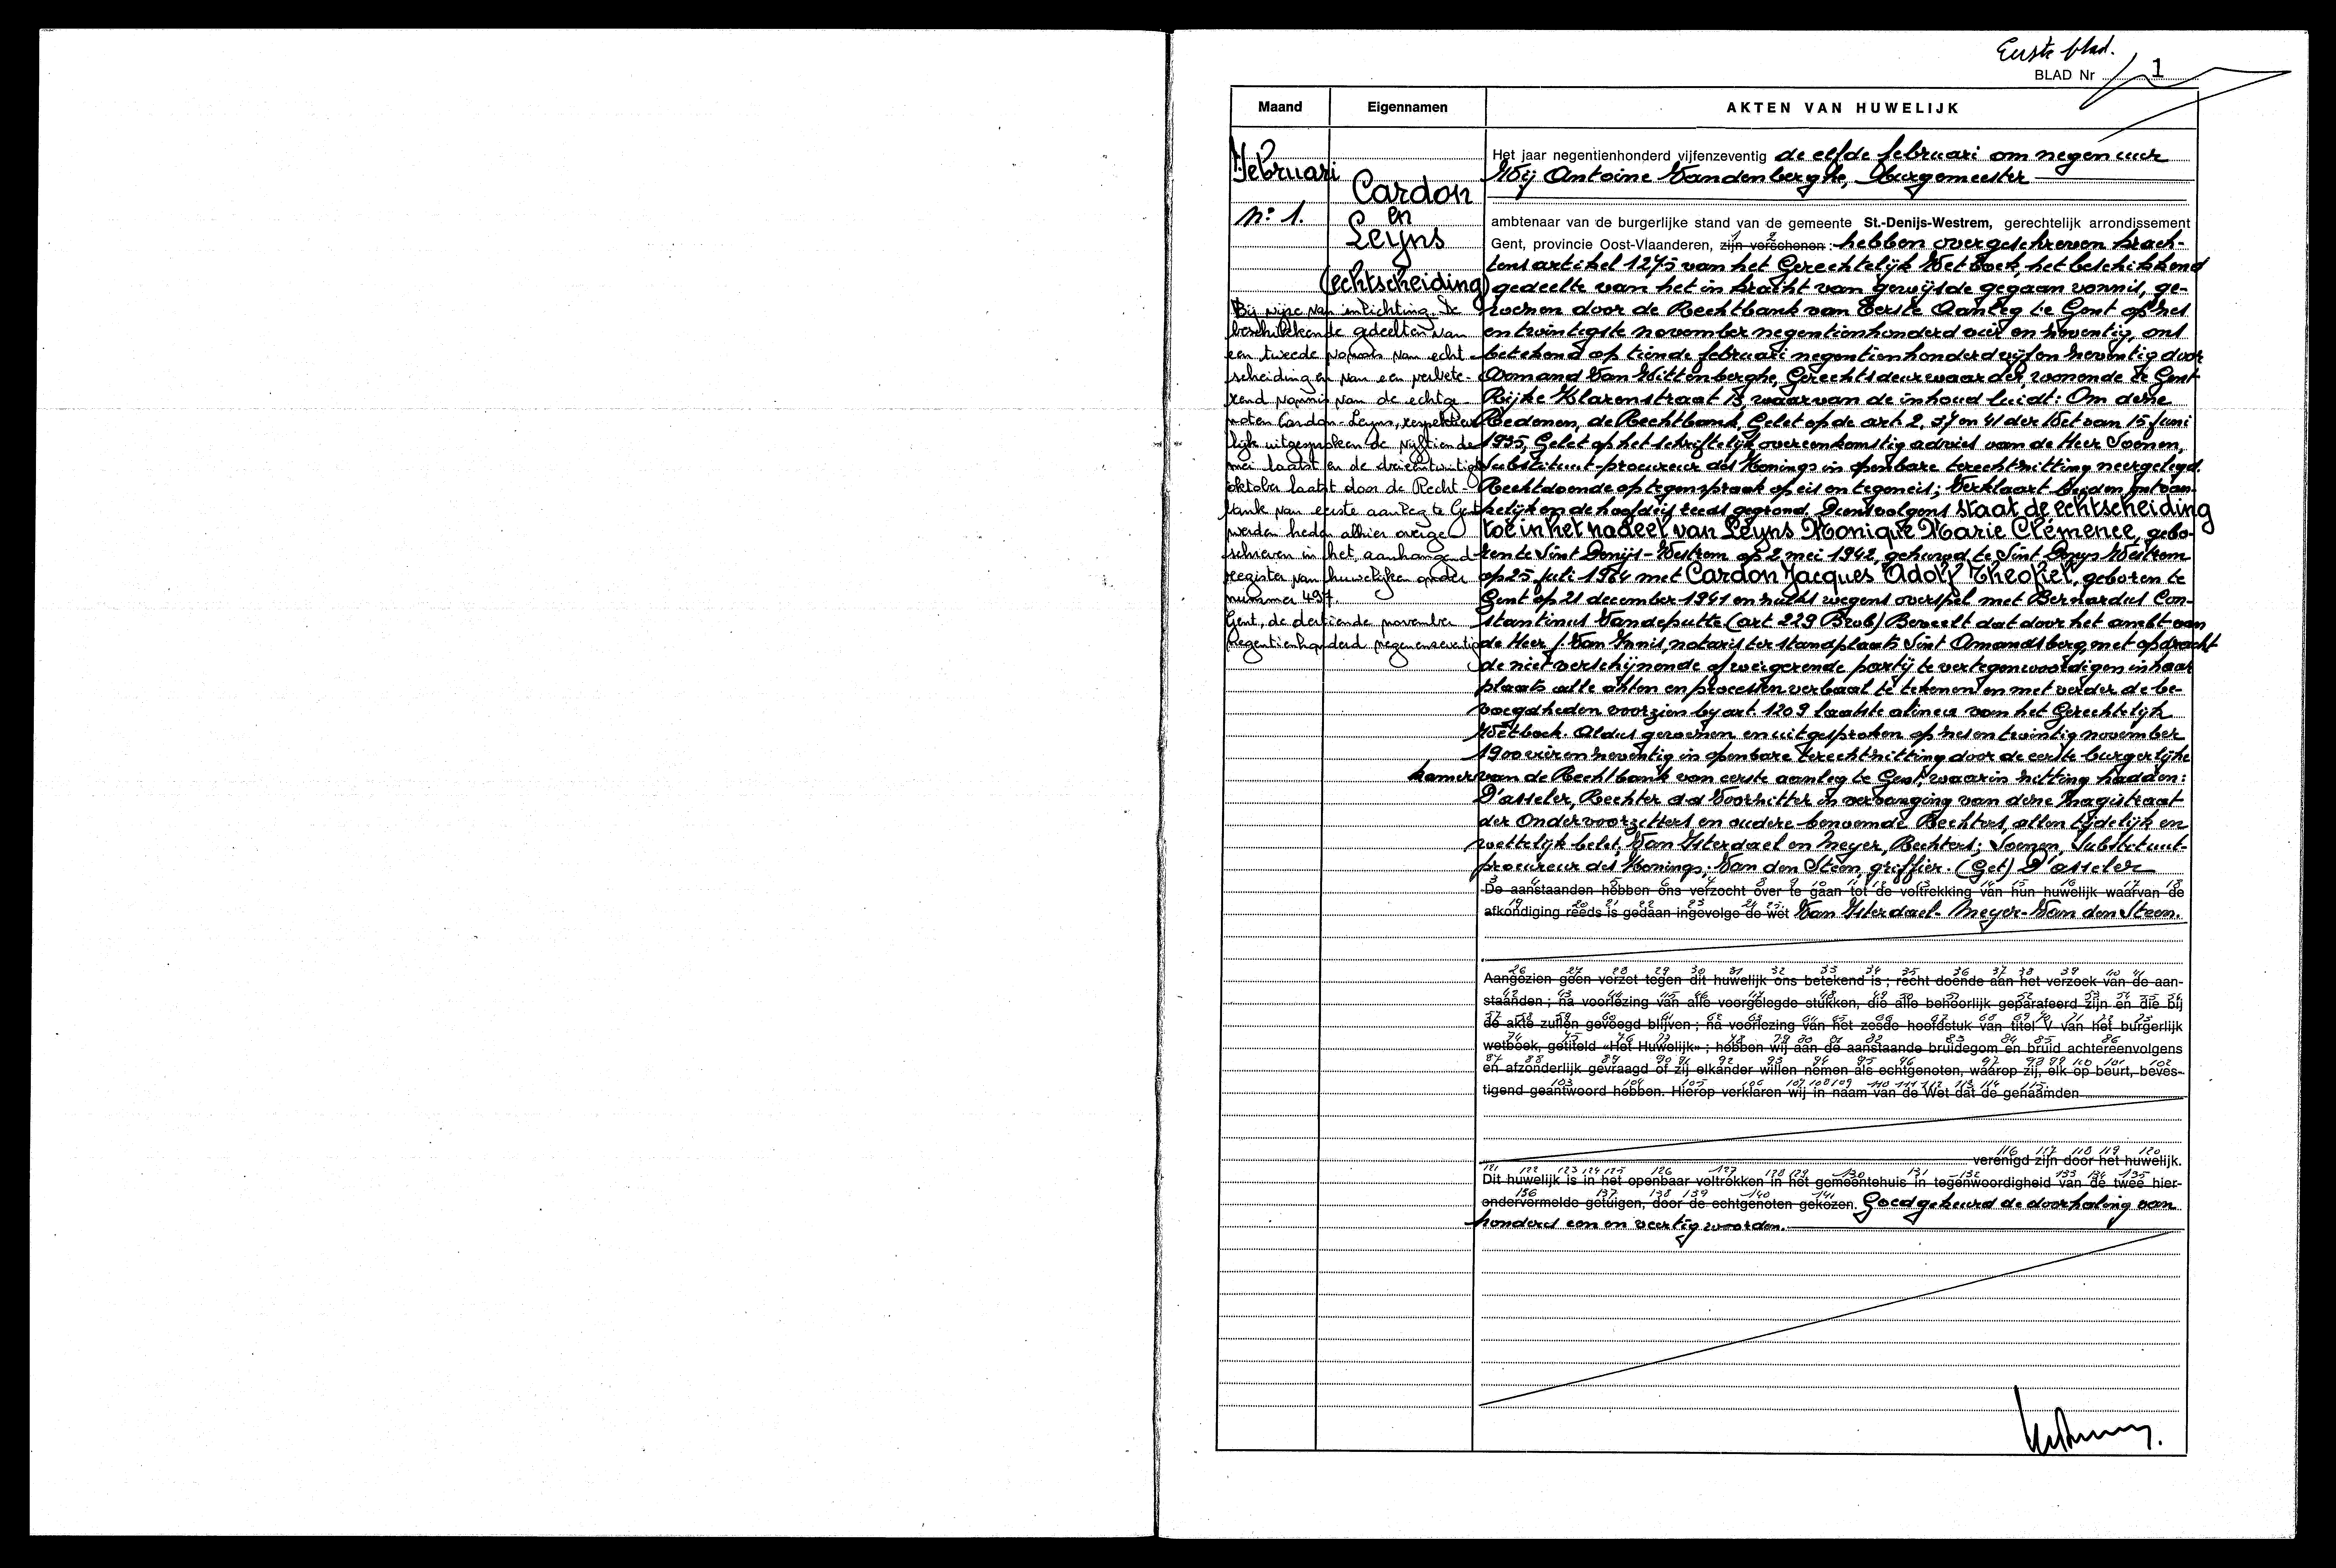 Eerste blad.
BLAD Nr 1
Maand
Eigennamen
AKTEN VAN HUWELIJK
Februari
n° 1.
Cardon
en
Leyns
(echtscheiding)
Bij wijze van inlichting. De
beschikkende gedeelten van
een tweede vonnis van echt-
scheiding en van een verbete-
rend vonnis van de echtge-
noten Cardon-Leyns, respektieve-
lijk uitgesproken de vijftiende
mei laatst en de drieëntwintigste
oktober laatst door de Recht-
bank van eerste aanleg te Gent
werden heden alhier overge-
schreven in het aanhangend
register van huwelijken onder
nummer 497.
Gent, de dertiende november
negentienhonderd negenenzeventig
Het jaar negentienhonderd vijfenzeventig de elfde februari om negen uur
Wij Antoine Vandenberghe, Burgemeester
ambtenaar van de burgerlijke stand van de gemeente St.-Denijs-Westrem, gerechtelijk arrondissement
Gent, provincie Oost-Vlaanderen, zijn verschenen : hebben overgeschreven krach-
tens artikel 1275 van het Gerechtelijk Wetboek, het beschikkend
gedeelte van het in kracht van gewijsde gegaan vonnis, ge-
wezen door de Rechtbank van Eerste Aanleg te Gent op zes
en twintigste november negentienhonderd vier en zeventig, ons
betekend op tiende februari negentienhonderd vijf en zeventig door
Armand Van Wittenberghe, Gerechtsdeurwaarder, wonende te Gent
Rijke Klarenstraat 13, waarvan de inhoud luidt: Om deze
Redenen, de Rechtbank, Gelet op de art. 2, 37 en 41 der Wet van 15 juni
1935, Gelet op het schriftelijk overeenkomstig advies van de Heer Soenen,
Substituut-procureur des Konings in openbare terechtzitting neergelegd.
Rechtdoende op tegenspraak op eis en tegeneis; Verklaart beiden ontvan-
kelijk en de hoofdeis reeds gegrond. Dienvolgens staat de echtscheiding
toe in het nadeel van Leyns Monique Marie Clémence, gebo-
ren te Sint Denijs-Westrem op 2 mei 1942, gehuwd te Sint Denys Westrem
op 25 juli 1964 met Cardon Jacques Adolf Theofiel, geboren te
Gent op 21 december 1941 en zulks wegens overspel met Bernardus Con-
stantinus Vandeputte (art 229 Bwb) Beveelt dat door het ambt van
de Heer J. Van Innis, notaris ter standplaats Sint Amandsberg, met opdracht
de niet verschijnende of weigerende partij te vertegenwoordigen in haar
plaats alle akten en processen verbaal te tekenen en met verder de be-
voegdheden voorzien by art. 1209 laatste alinea van het Gerechtelijk
Wetboek. Aldus gewezen en uitgesproken op zes en twintig november
1900 vier en zeventig in openbare terechtzitting door de eerste burgerlijke
kamer van de Rechtbank van eerste aanleg te Gent, waarin zitting hadden:
D'asseler, Rechter dd Voorzitter in vervanging van deze Magistraat
der Ondervoorzitters en oudere benoemde Rechters, allen tijdelijk en
wettelijk belet, Van Isterdael en Meyer, Rechters; Soenen, Substituut-
procureur des Konings; Van den Steen, griffier. (Get) D'asseler
De aanstaanden hebben ons verzocht over te gaan tot de voltrekking van hun huwelijk waarvan de
afkondiging reeds is gedaan ingevolge de wet Van Isterdael- Meyer-Van den Steen.
Aangezien geen verzet tegen dit huwelijk ons betekend is ; recht doende aan het verzoek van de aan-
staanden ; na voorlezing van alle voorgelegde stukken, die alle behoorlijk geparafeerd zijn en die bij
de akte zullen gevoegd blijven ; na voorlezing van het zesde hoofdstuk van titel V van het burgerlijk
wetboek, getiteld «Het Huwelijk» ; hebben wij aan de aanstaande bruidegom en bruid achtereenvolgens
en afzonderlijk gevraagd of zij elkander willen nemen als echtgenoten, waarop zij, elk op beurt, beves-
tigend geantwoord hebben. Hierop verklaren wij in naam van de Wet dat de genaamden
verenigd zijn door het huwelijk.
Dit huwelijk is in het openbaar voltrokken in het gemeentehuis in tegenwoordigheid van de twee hier-
ondervermelde getuigen, door de echtgenoten gekozen. Goedgekeurd de doorhaling van
honderd een en veertig woorden.